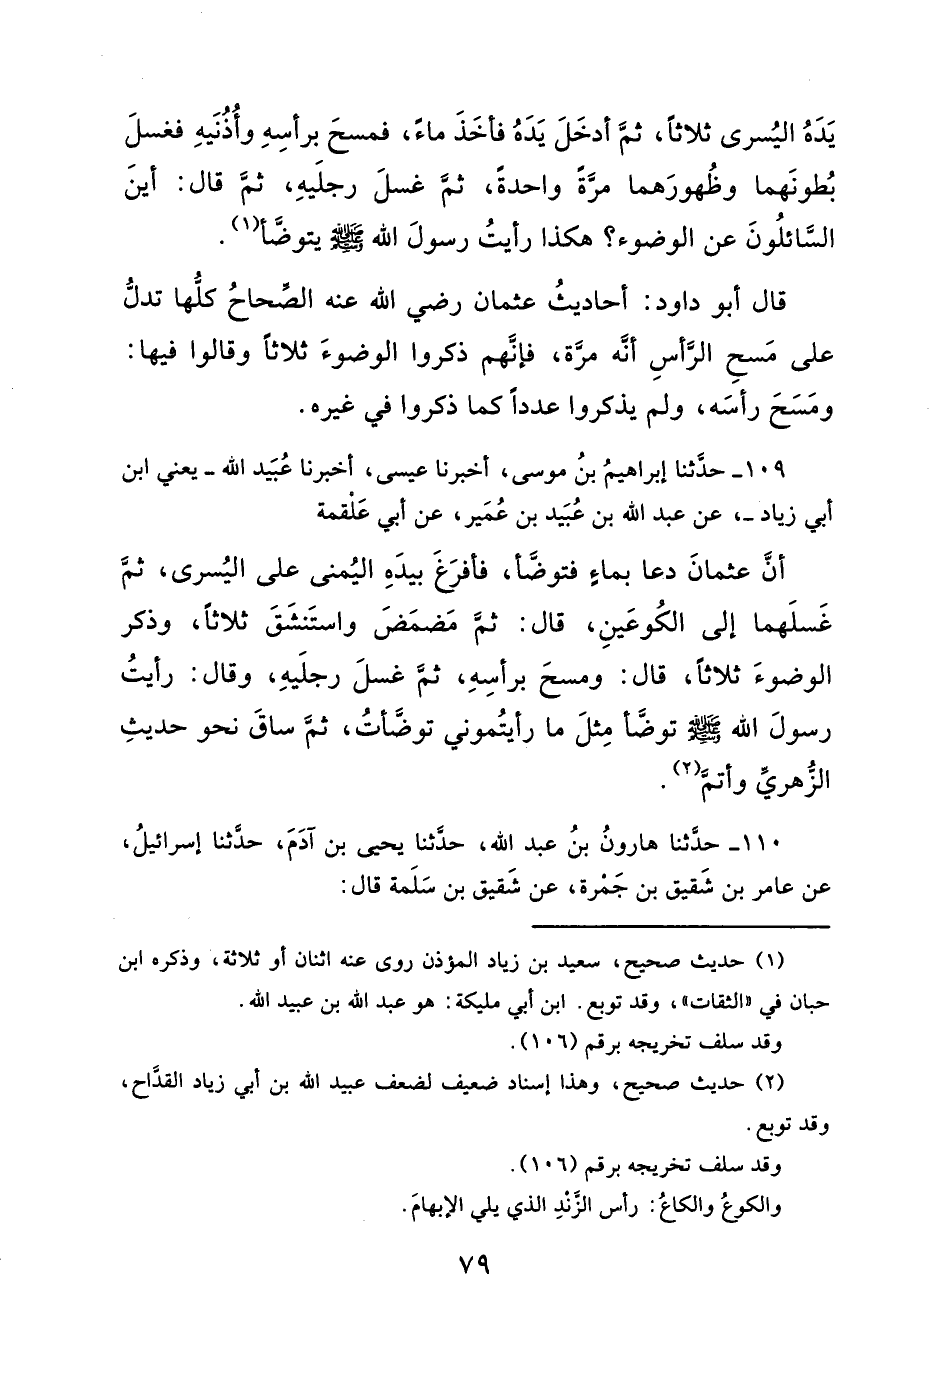 يَدَهُ اليُسرى ثلاثاً، ثمَّ أدخَلَ يَدَهُ فأخَذَ ماءً، فمسحَ برأسِهِ وأُذُنَيهِ فغسلَ
بُطونَهما وظُهورَهما مرَّةً واحدةً، ثمَّ غسلَ رجلَيهِ، ثمَّ قال: أينَ
السَّائلُونَ عن الوضوء؟ هكذا رأيتُ رسولَ الله ﷺ يتوضَّأ(١).
قال أبو داود: أحاديثُ عثمان رضي الله عنه الصِّحاحُ كلُّها تدلُّ
على مَسحِ الرَّأسِ أنَّه مرَّة، فإنَّهم ذكروا الوضوءَ ثلاثاً وقالوا فيها:
ومَسَحَ رأسَه، ولم يذكروا عدداً كما ذكروا في غيره.
١٠٩ـ حدَّثنا إبراهيمُ بنُ موسى، أخبرنا عيسى، أخبرنا عُبَيد الله ـ يعني ابن
أبي زياد ـ، عن عبد الله بن عُبَيد بن عُمَير، عن أبي عَلْقمة
أنَّ عثمانَ دعا بماءٍ فتوضَّأ، فأفرَغَ بيدَهِ اليُمنى على اليُسرى، ثمَّ
غَسلَهما إلى الكُوعَينِ، قال: ثمَّ مَضمَضَ واستَنشَقَ ثلاثاً، وذكر
الوضوءَ ثلاثاً، قال: ومسحَ برأسِهِ، ثمَّ غسلَ رجلَيهِ، وقال: رأيتُ
رسولَ الله ﷺ توضَّأ مِثلَ ما رأيتُموني توضَّأتُ، ثمَّ ساقَ نحو حديثِ
الزُّهريِّ وأتمَّ(٢).
١١٠ـ حدَّثنا هارونُ بنُ عبد الله، حدَّثنا يحيى بن آدَمَ، حدَّثنا إسرائيلُ،
عن عامر بن شَقيق بن جَمْرة، عن شَقيق بن سَلَمة قال:
(١) حديث صحيح، سعيد بن زياد المؤذن روى عنه اثنان أو ثلاثة، وذكره ابن
حبان في «الثقات»، وقد توبع. ابن أبي مليكة: هو عبد الله بن عبيد الله.
وقد سلف تخريجه برقم (١٠٦).
(٢) حديث صحيح، وهذا إسناد ضعيف لضعف عبيد الله بن أبي زياد القدَّاح،
وقد توبع.
وقد سلف تخريجه برقم (١٠٦).
والكوعُ والكاعُ: رأس الزَّنْدِ الذي يلي الإبهامَ.
٧٩